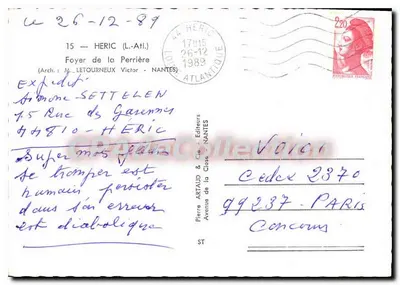 Le 26-12-89
15 — HERIC (L.-Atl.)
Foyer de la Perrière
(Arch. : M. LETOURNEUX Victor - NANTES)
44 HERIC
17H15
26-12
1989
LOIRE ATLANTIQUE
2,20
Expédit
Simone SETTELEN
15 Rue des Garennes
44810 - HERIC
Super mot
Se tromper est
humain persister
dans son erreur
est diabolique
Pierre ARTAUD & Cie - Editeurs
Avenue de la Close - NANTES
ST
Voici
Cedex 2370
99237 - PARIS
Concours